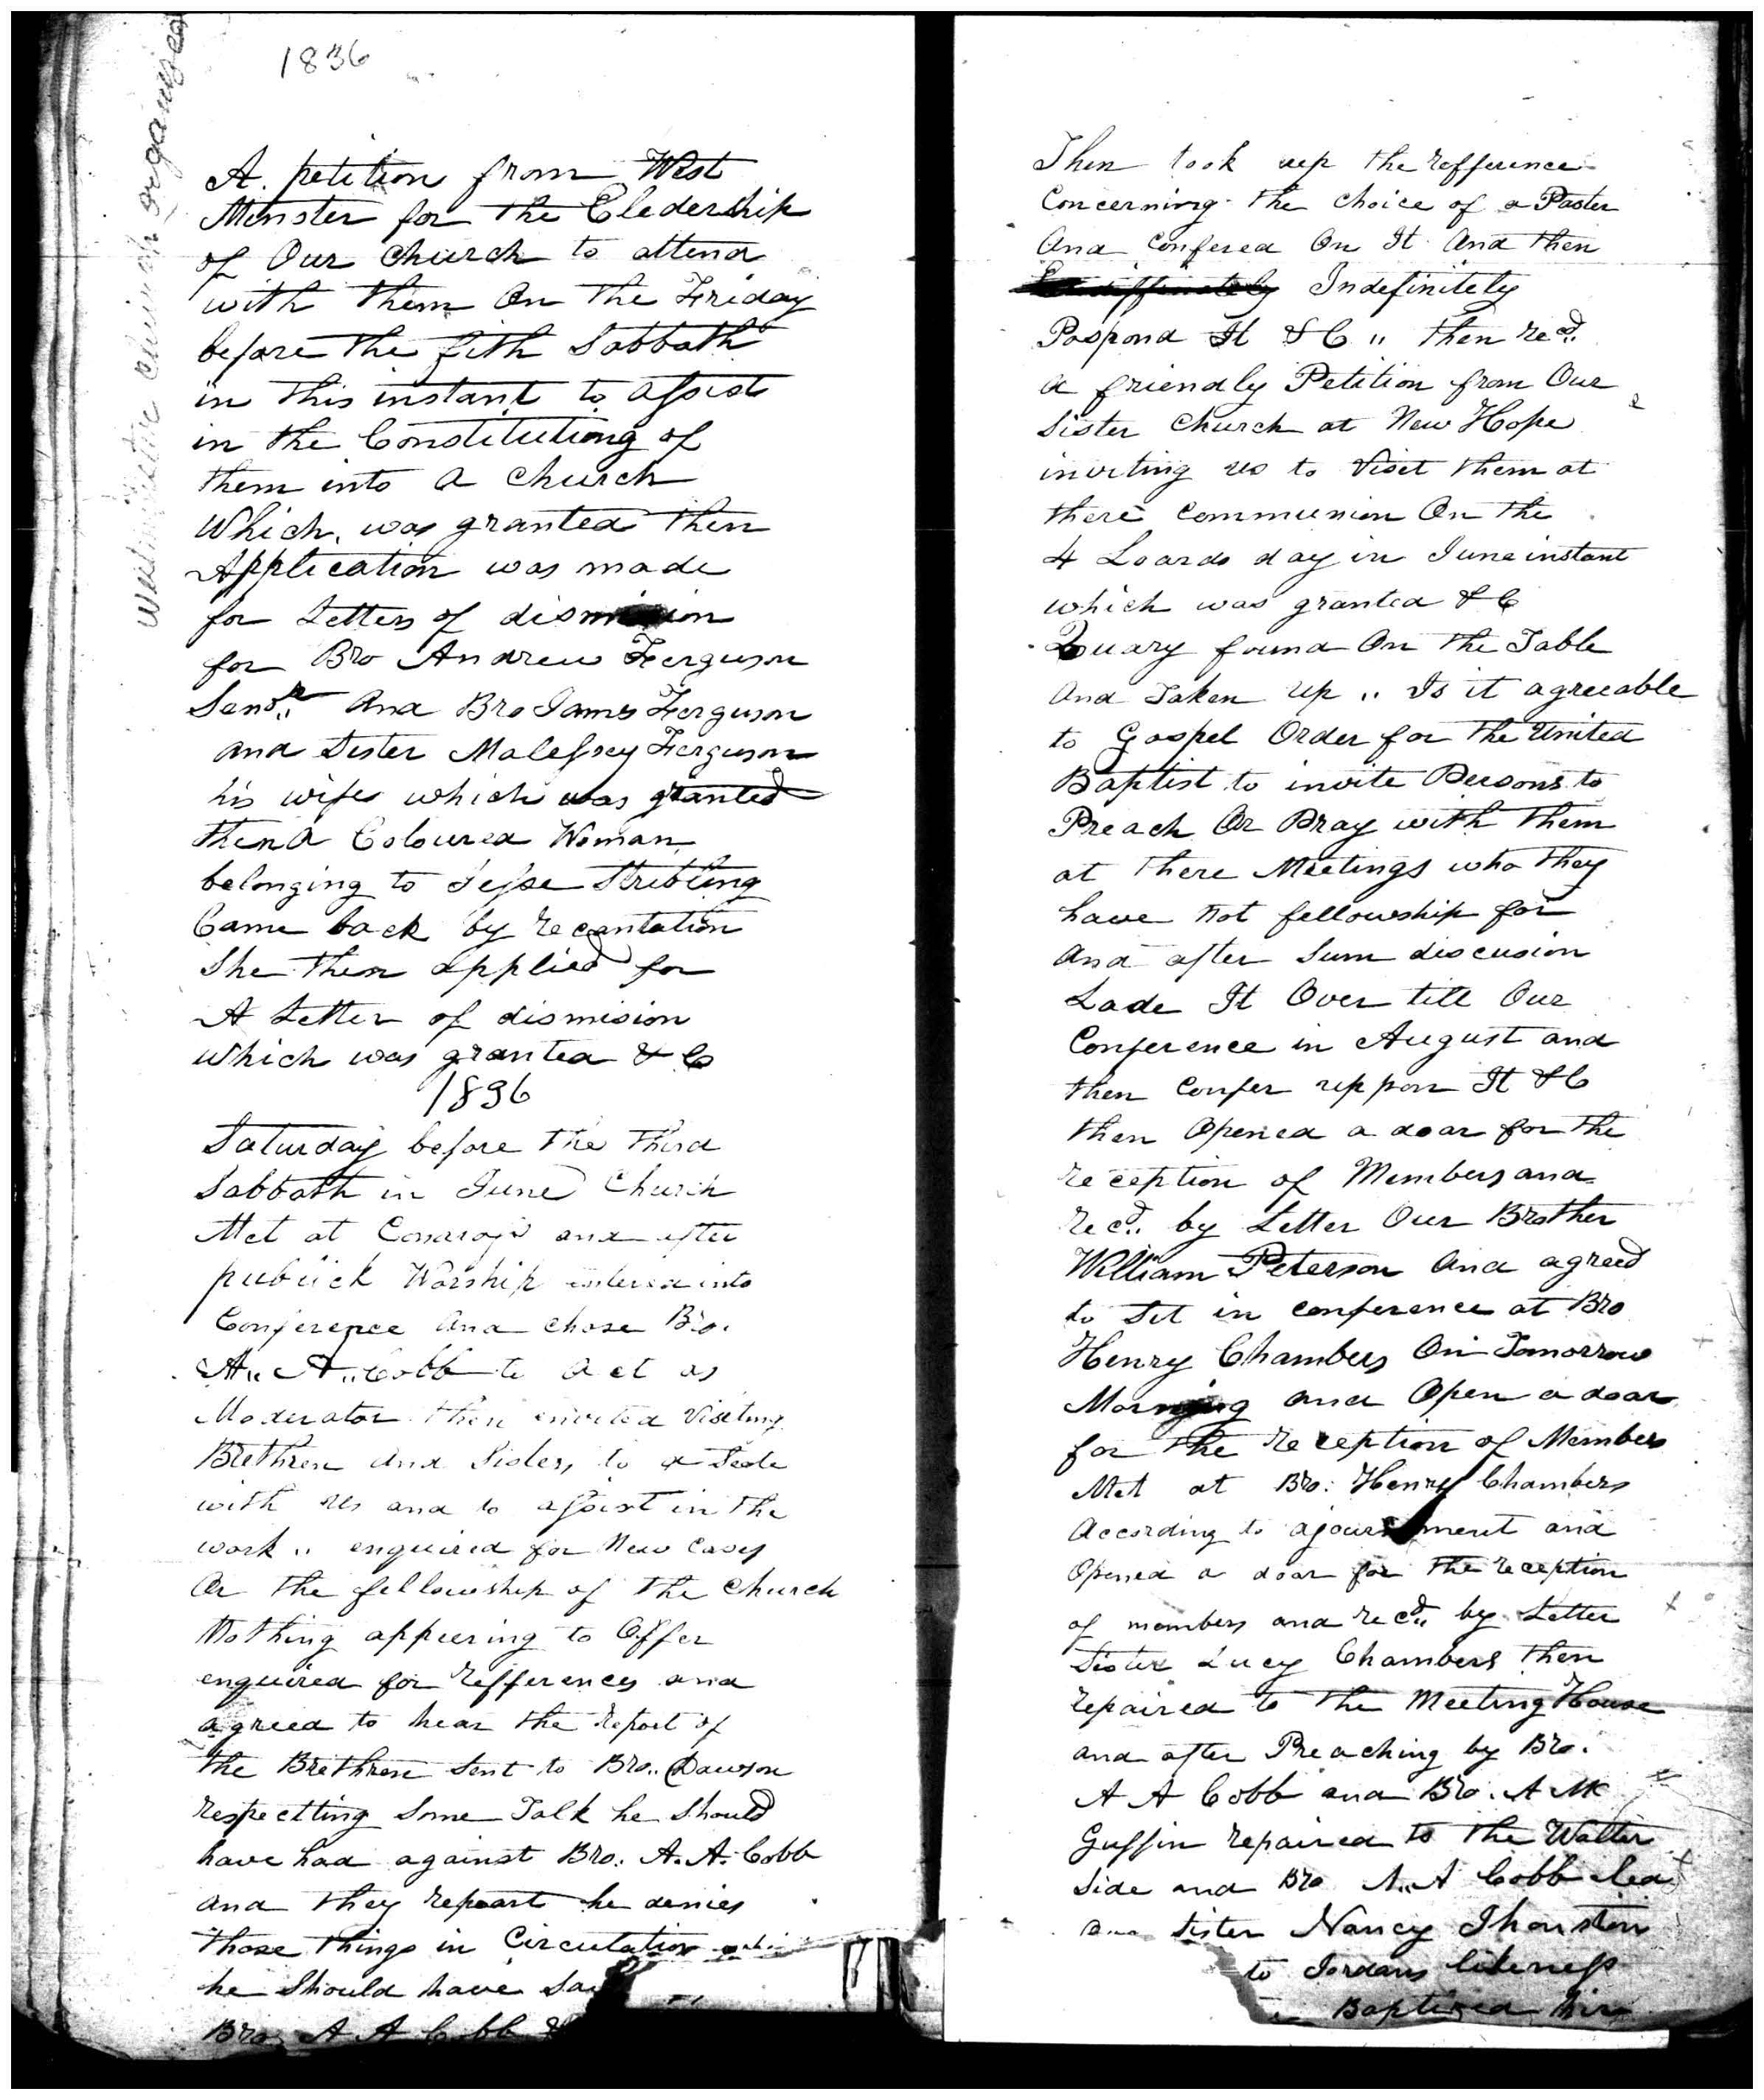 1836
Westminster church organised
A. petition from West
Minster for the Eledership
of Our Church to attend
with them On the Friday
before the fith Sabbath
in this instant to assist
in the Constitutiong of
them into a Church
Which, was granted then
Application was made
for Letters of dismision
for Bro Andrew Ferguson
Senr. And Bro James Ferguson
and Sister Malessey Ferguson
his wife which was granted
then a Coloured Woman
belonging to Jesse Stribling
Came back by recantation
She then applied for
A Letter of dismision
which was granted & C
1836
Saturday before the third
Sabbath in June Church
Met at and after
publick Worship entered into
Conference And chose Bro.
A,, A,, Cobb to act as
Moderator then envited Visiting
Brethren And Sisters to a Seate
with us and to assist in the
work ,, enquired for New Cases
Or the fellowship of the Church
Nothing appeering to Offer
enquired for refferences and
agreed to hear the report of
the Brethren Sent to Bro,, Dawson
respectting Some Talk he Should
have had against Bro. A. A. Cobb
and they repoart he denies
those things in Circulation
he Should have
Bro A A Cobb
Then took up the refference
Concerning the choice of a Paster
And Confered On It And then
Indefinitely
Pospond It & C ,, then recd.
a friendly Petition from Our
Sister Church at New Hope
inviting us to Viset them at
there Communion On the
4 Loards day in June instant
which was granted & C
Quary found On the Table
And Taken Up ,, Is it agreeable
to Gospel Order for the United
Baptist to invite Persons to
Preach Or Pray with them
at there Meetings who they
have not fellowship for
And after Sum discusion
Lade It Over till Our
Conference in August and
then Confer uppon It & C
then Opened a doar for the
reception of Members and
recd. by Letter Our Brother
William Peterson And agreed
to Set in conference at Bro
Henry Chambers On Tomorrow
Morning and Open a doar
for the reception of Members
Met at Bro: Henry Chambers
According to ajournment and
Opened a doar for the reception
of members and recd. by Letter
Sister Lucy Chambers then
repaired to the Meeting House
and after Preaching by Bro.
A A Cobb and Bro. A Mc
Guffin repaired to the Watter
Side and Bro A,, A Cobb lead
Sister Nancy
to Jordans likeness
Baptised